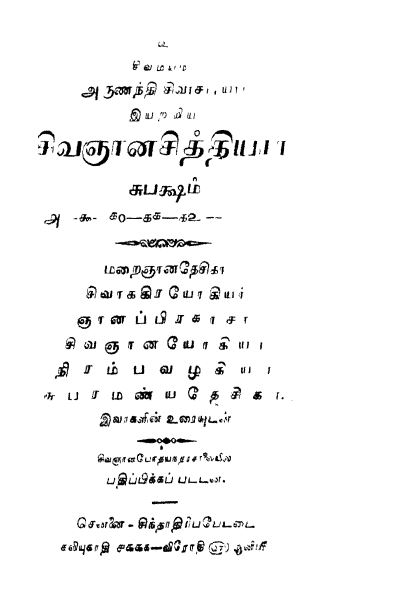 சிவமயம்
அருணந்தி சிவாசாரியார்
இயற்றிய
சிவஞானசித்தியார்
சுபக்ஷம்
அ -௯- ௧௦—௧௧—௧௨ —
மறைஞானதேசிகர்
சிவாக்கிரயோகியர்
ஞானப்பிரகாசர்
சிவஞானயோகியர்
நிரம்பவழகியர்
சுப்ரமண்யதேசிகர்.
இவர்களின் உரையுடன்
சிவஞானபோதயந்த்ரசாலையில்
பதிப்பிக்கப் பட்டன.
சென்னை - சிந்தாதிரிபபேட்டை
கலியுகாதி விரோதி ஆனி௴